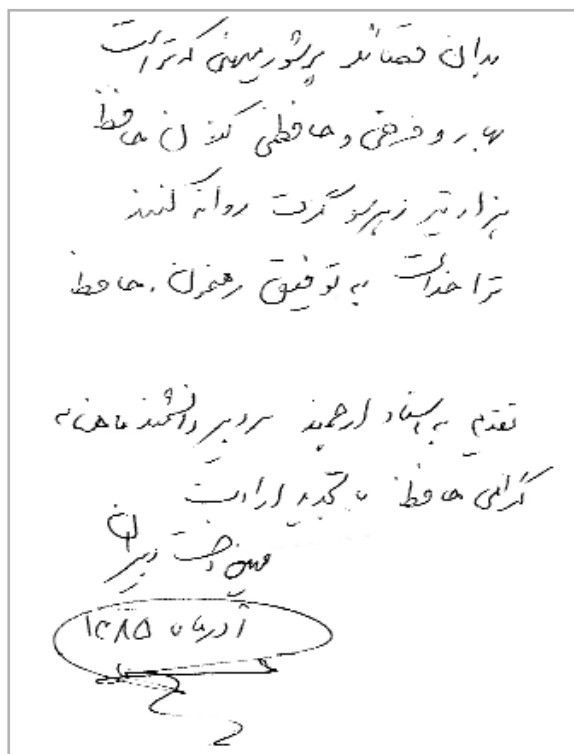 بدان قصائد پرشور میهنی که تراست
بهار و فرخی و حافظی کلان حافظ
هزار تیر ز هر سو گرت روانه کنند
ترا خداست به توفیق رهنمون، حافظ
تقدیم به استاد ارجمند سردبیر دانشمند ماهنامه
گرامی حافظ با تجدید ارادت
دبیران
آذرماه ۱۳۸۵